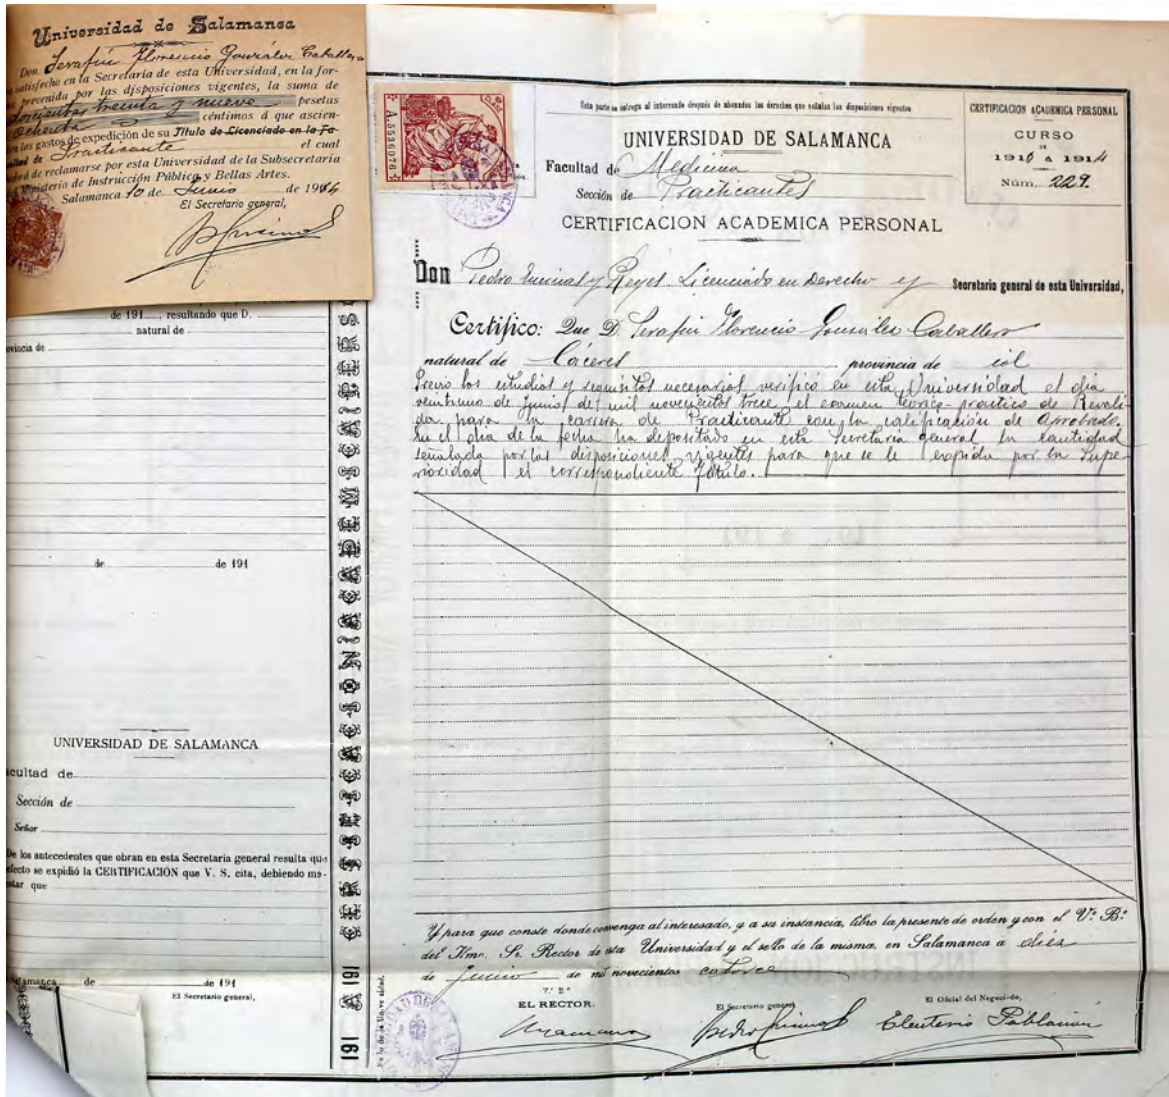 Universidad de Salamanca
Don Serafín Florencio González Caballero
satisfecho en la Secretaría de esta Universidad, en la for-
prevenida por las disposiciones vigentes, la suma de
doscientas treinta y nueve pesetas
ochenta céntimos á que ascien-
los gastos de expedición de su Título de Licenciado en la Fa-
cultad de Practicante el cual
de reclamarse por esta Universidad de la Subsecretaria
Ministerio de Instrucción Pública y Bellas Artes.
Salamanca 10 de Junio de 1914
El Secretario general,
de 191 , resultando que D.
natural de
ovincia de
de de 191
UNIVERSIDAD DE SALAMANCA
acultad de
Sección de
Señor
De los antecedentes que obran en esta Secretaria general resulta que
efecto se expidió la CERTIFICACIÓN que V. S. cita, debiendo ma-
star que
Salamanca de de 191
El Secretario general,
191 A 191 CERTIFICACION ACADEMICA PERS
A.5536076
Esta parte se entrega al interesado después de abonados los derechos que señalan las disposiciones vigentes
UNIVERSIDAD DE SALAMANCA
Facultad de Medicina
Sección de Practicantes
CERTIFICACION ACADEMICA PERSONAL
CURSO
DE
1913 A 1914
Núm. 229.
CERTIFICACION ACADEMICA PERSONAL
Don Pedro Encinas y Reyes. Licenciado en Derecho y Secretario general de esta Universidad,
Certifico: Que D. Serafín Florencio González Caballero
natural de Cáceres provincia de íd
Previo los estudios y requisitos necesarios verificó en esta Universidad el día
veintiuno de Junio de mil novecientos trece el examen teórico-práctico de Reváli-
da para la carrera de Practicante con la calificación de Aprobado.
En el día de la fecha ha depositado en esta Secretaría general la cantidad
señalada por las disposiciones vigentes para que se le expida por la Supe-
rioridad el correspondiente Título.
Y para que conste donde convenga al interesado, y a su instancia, libro la presente de orden y con el V.º B.º
del Ilmo. Sr. Rector de esta Universidad y el sello de la misma, en Salamanca a diez
de Junio de mil novecientos catorce
V.º B.º
EL RECTOR. El Secretario general El Oficial del Negociado,
Unamuno Pedro Encinas Eleuterio Población